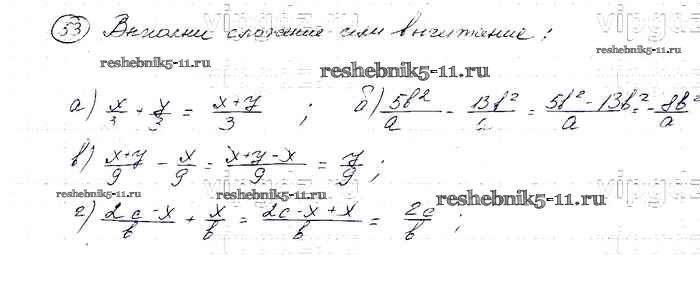 53 Выполни сложение или вычитание:
reshebnik5-11.ru reshebnik5-11.ru
а) x/3 + y/3 = x+y/3 ; б) 5b²/a - 13b²/a = 5b²-13b²/a = -8b²/a
в) x+y/9 - x/9 = x+y-x/9 = y/9 ;
reshebnik5-11.ru reshebnik5-11.ru
г) 2c-x/b + x/b = 2c-x+x/b = 2c/b ;